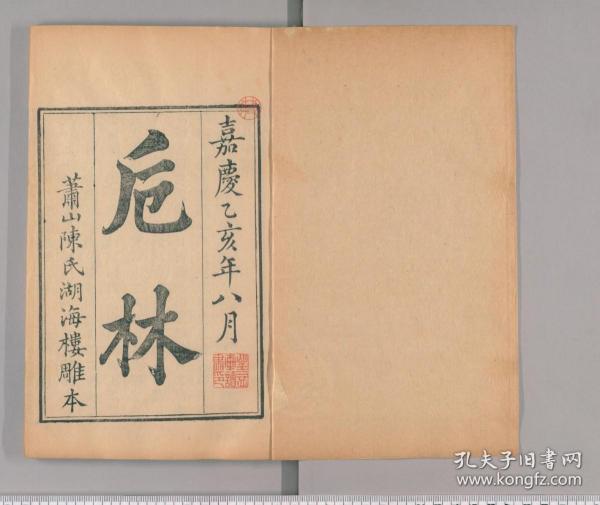 嘉慶乙亥年八月
卮林
蕭山陳氏湖海樓雕本
孔夫子旧书网
www.kongfz.com